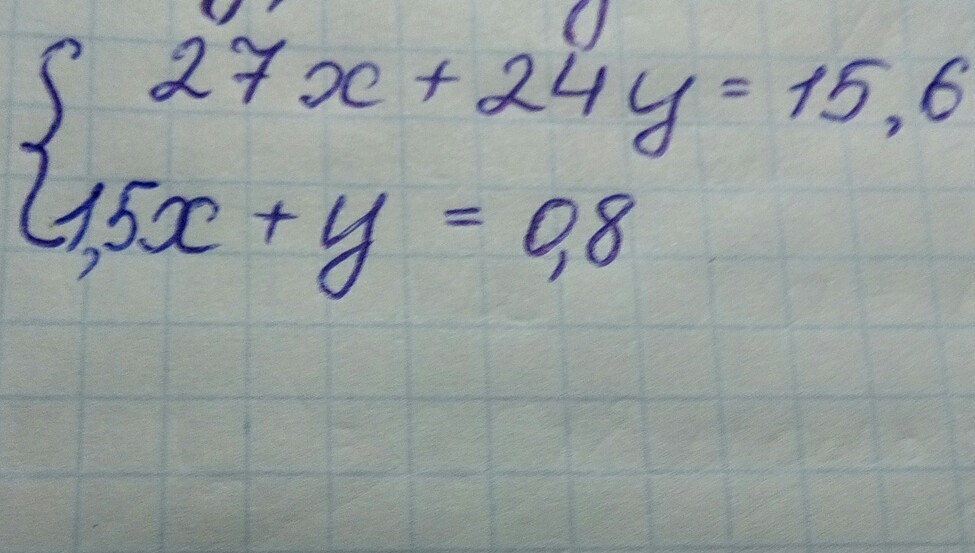 27x + 24y = 15,6
1,5x + y = 0,8